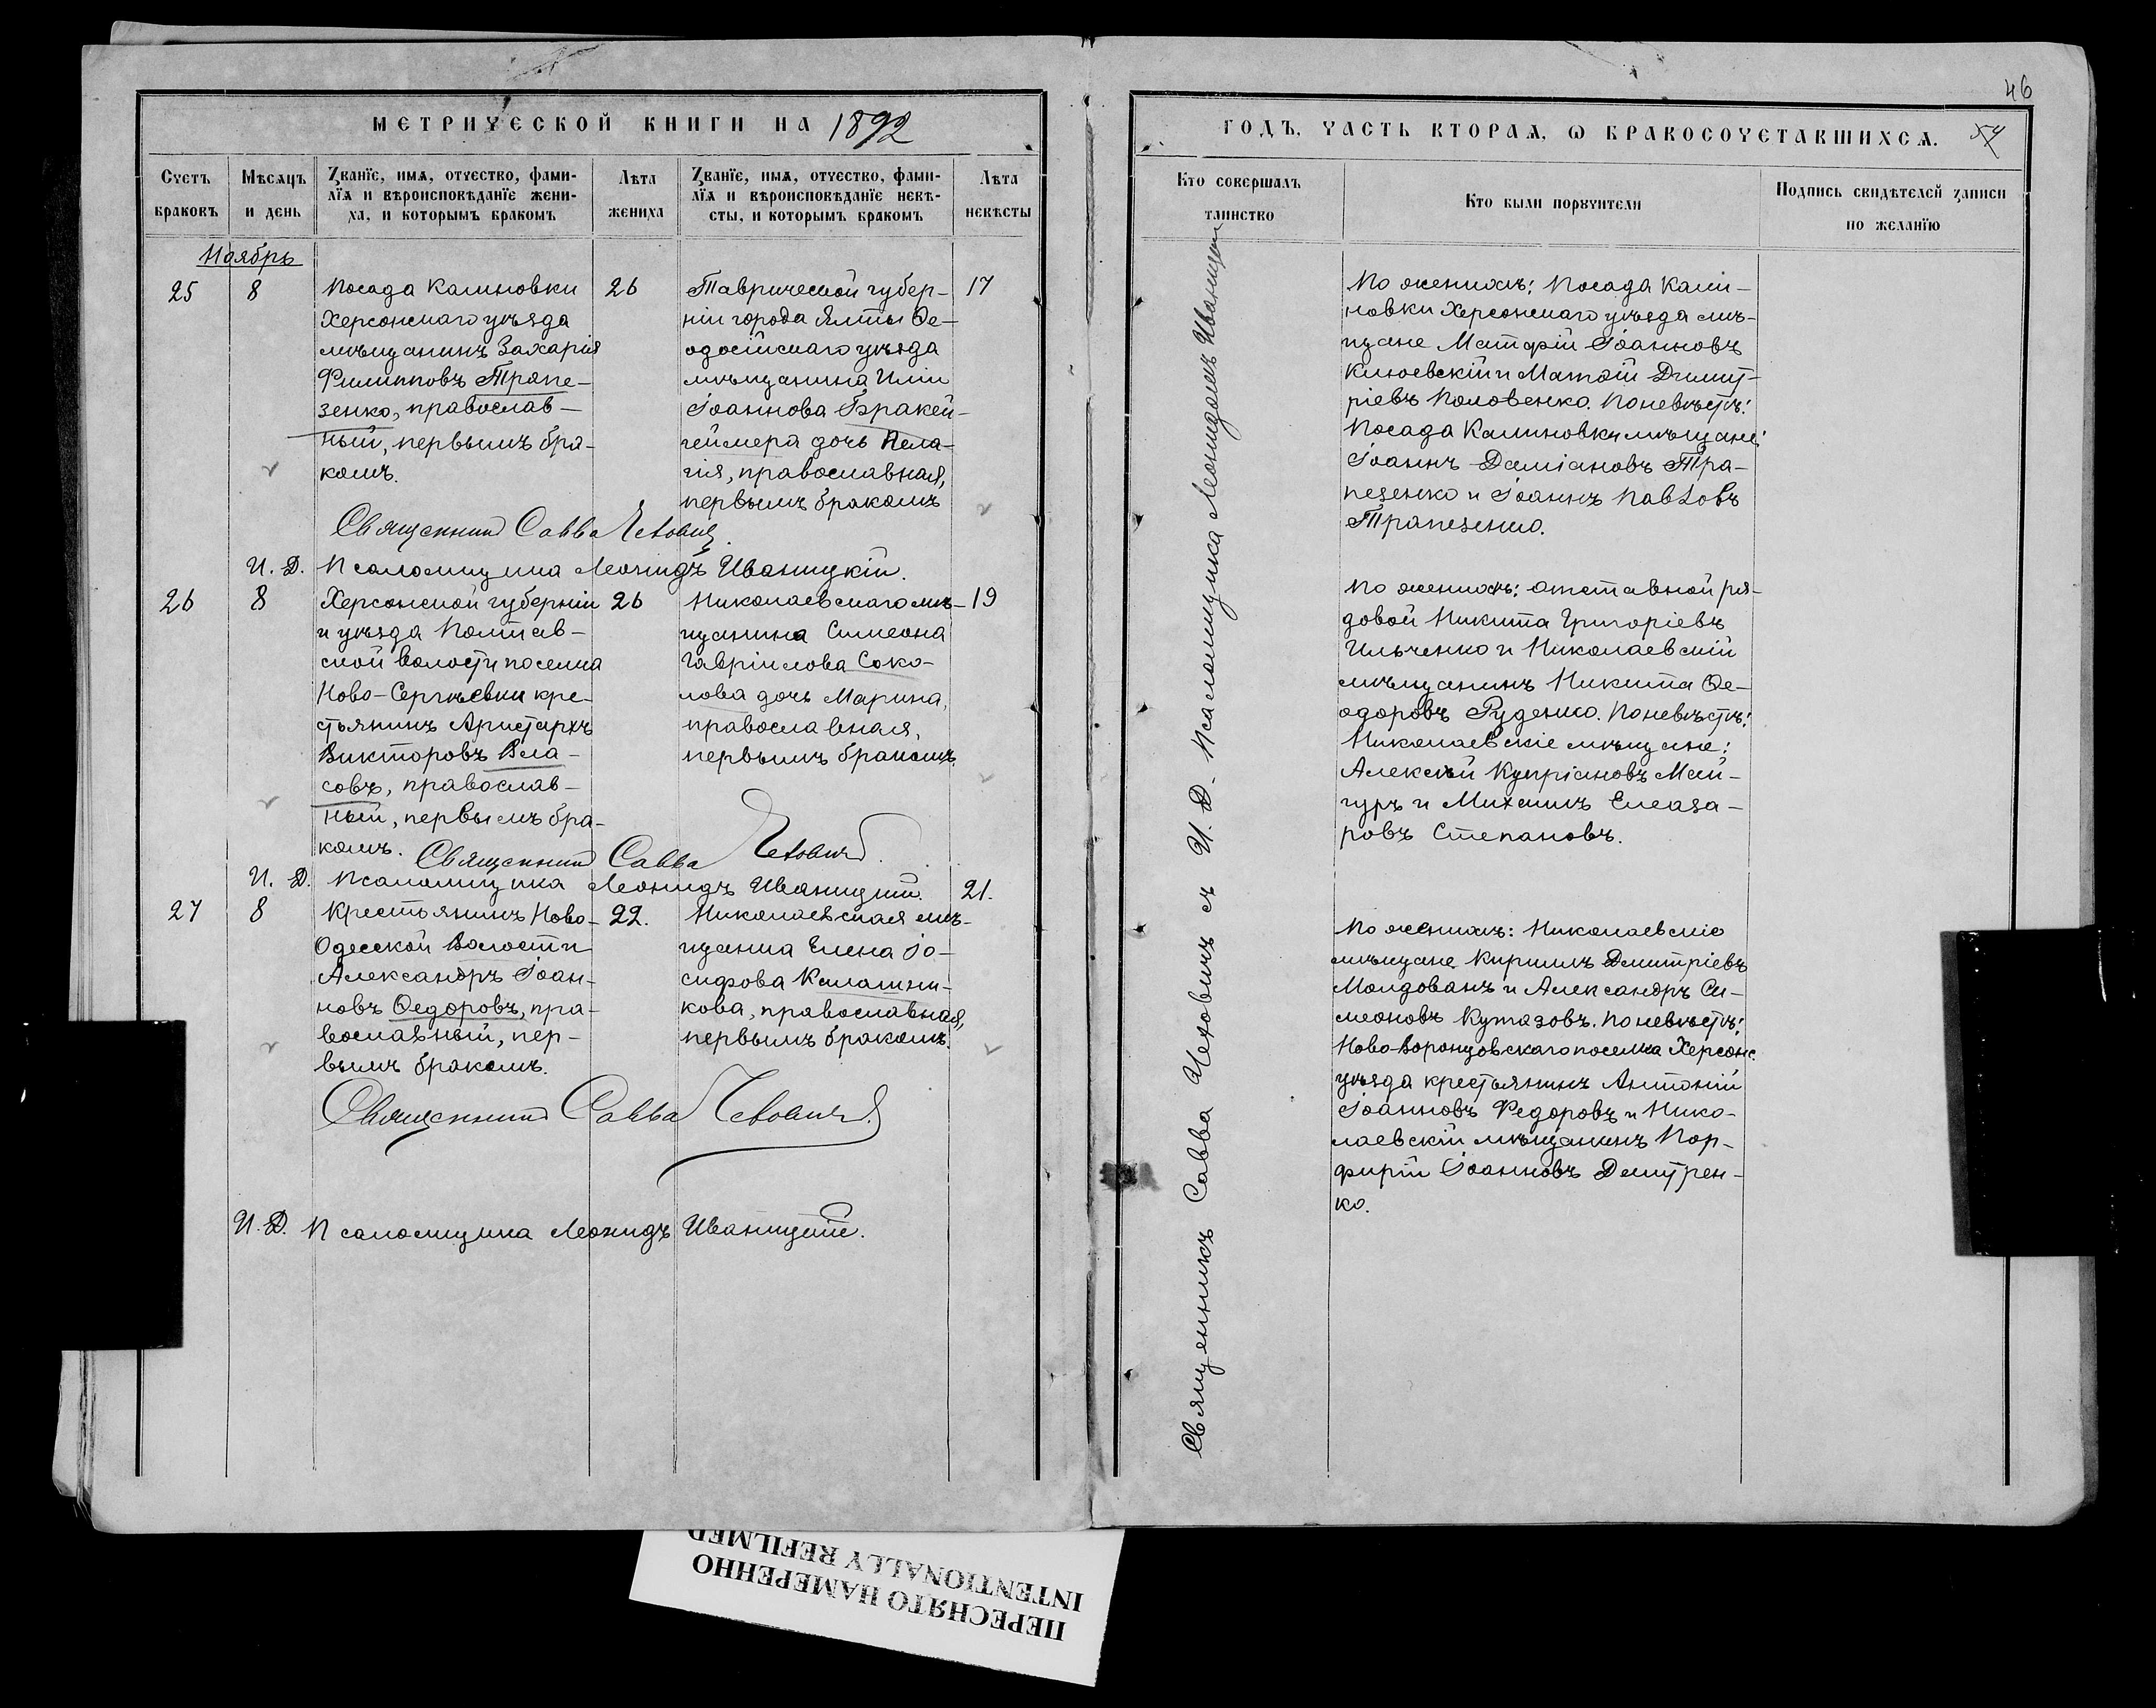 МЕТРИЧЕСКОЙ КНИГИ НА 1892
Счетъ браковъ
Мѣсяцъ и день
Званїе, имѧ, отчество, фами-
лїѧ и вѣроисповѣданїе жени-
ха, и которымъ бракомъ
Лѣта жениха
Званїе, имѧ, отчество, фами-
лїѧ и вѣроисповѣданїе невѣ-
сты, и которымъ бракомъ
Лѣта невѣсты
Ноябрь
25
8
Посада Калиновки
Херсонскаго уѣзда
мѣщанинъ Захарія
Филипповъ Трапе-
зенко, православ-
ный, первымъ бра-
комъ.
26
Таврической губер-
ніи города Ялты Ѳе-
одосійскаго уѣзда
мѣщанина Иліи
Іоаннова Бракен-
геймера дочь Пела-
гія, православная,
первымъ бракомъ
17
Священникъ Савва Чехович
И. Д. Псаломщика Леонидъ Иваницкій.
26
8
Херсонской губерніи
и уѣзда Полтав-
ской волости поселка
Ново-Сергѣевки кре-
стьянинъ Аристархъ
Викторовъ Вла-
совъ, православ-
ный, первымъ бра-
комъ.
26
Николаевскаго мѣ-
щанина Симеона
Гавріилова Соко-
лова дочь Марина,
православная,
первымъ бракомъ.
19
Священникъ Савва Чеховичъ.
И. Д. Псаломщика Леонидъ Иваницкій.
27
8
Крестьянинъ Ново-
Одесской волости
Александръ Іоан-
новъ Ѳедоровъ, пра-
вославный, пер-
вымъ бракомъ.
22.
Николаевская мѣ-
щанка Елена Іо-
сифова Калашни-
кова, православная,
первымъ бракомъ.
21.
Священникъ Савва Чеховичъ.
И. Д. Псаломщика Леонидъ Иваницкій.
46
ГОДЪ, ЧАСТЬ ВТОРАѦ, Ѡ БРАКОСОЧЕТАВШИХСѦ.
Кто совершалъ
таинство
Кто были порꙋчители
Подпись свидѣтелей записи
по желанїю
Священникъ Савва Чеховичъ съ И. Д. Псаломщика Леонидомъ Иваницким
По женихѣ: Посада Кали-
новки Херсонскаго уѣзда мѣ-
щане Матфій Іоанновъ
Клюевскій и Матѳій Димит-
ріевъ Половенко. По невѣстѣ:
Посада Калиновки мѣщане:
Іоаннъ Даміановъ Тра-
пезенко и Іоаннъ Павловъ
Трапезенко.
По женихѣ: отставной ря-
довой Никита Григоріевъ
Ильченко и Николаевскій
мѣщанинъ Никита Ѳе-
одоровъ Руденко. По невѣстѣ:
Николаевскіе мѣщане:
Алексѣй Купріановъ Май-
гуръ и Михаилъ Елеаза-
ровъ Степановъ.
По женихѣ: Николаевскіе
мѣщане Кириллъ Димитріевъ
Молдованъ и Александръ Си-
меоновъ Кутазовъ. По невѣстѣ:
Ново-Воронцовскаго поселка Херсонс.
уѣзда крестьянинъ Антоній
Іоанновъ Федоровъ и Нико-
лаевскій мѣщанинъ Пор-
фирій Іоанновъ Дмитрен-
ко.
ПЕРЕСНЯТО НАМЕРЕННО
INTENTIONALLY REFILMED